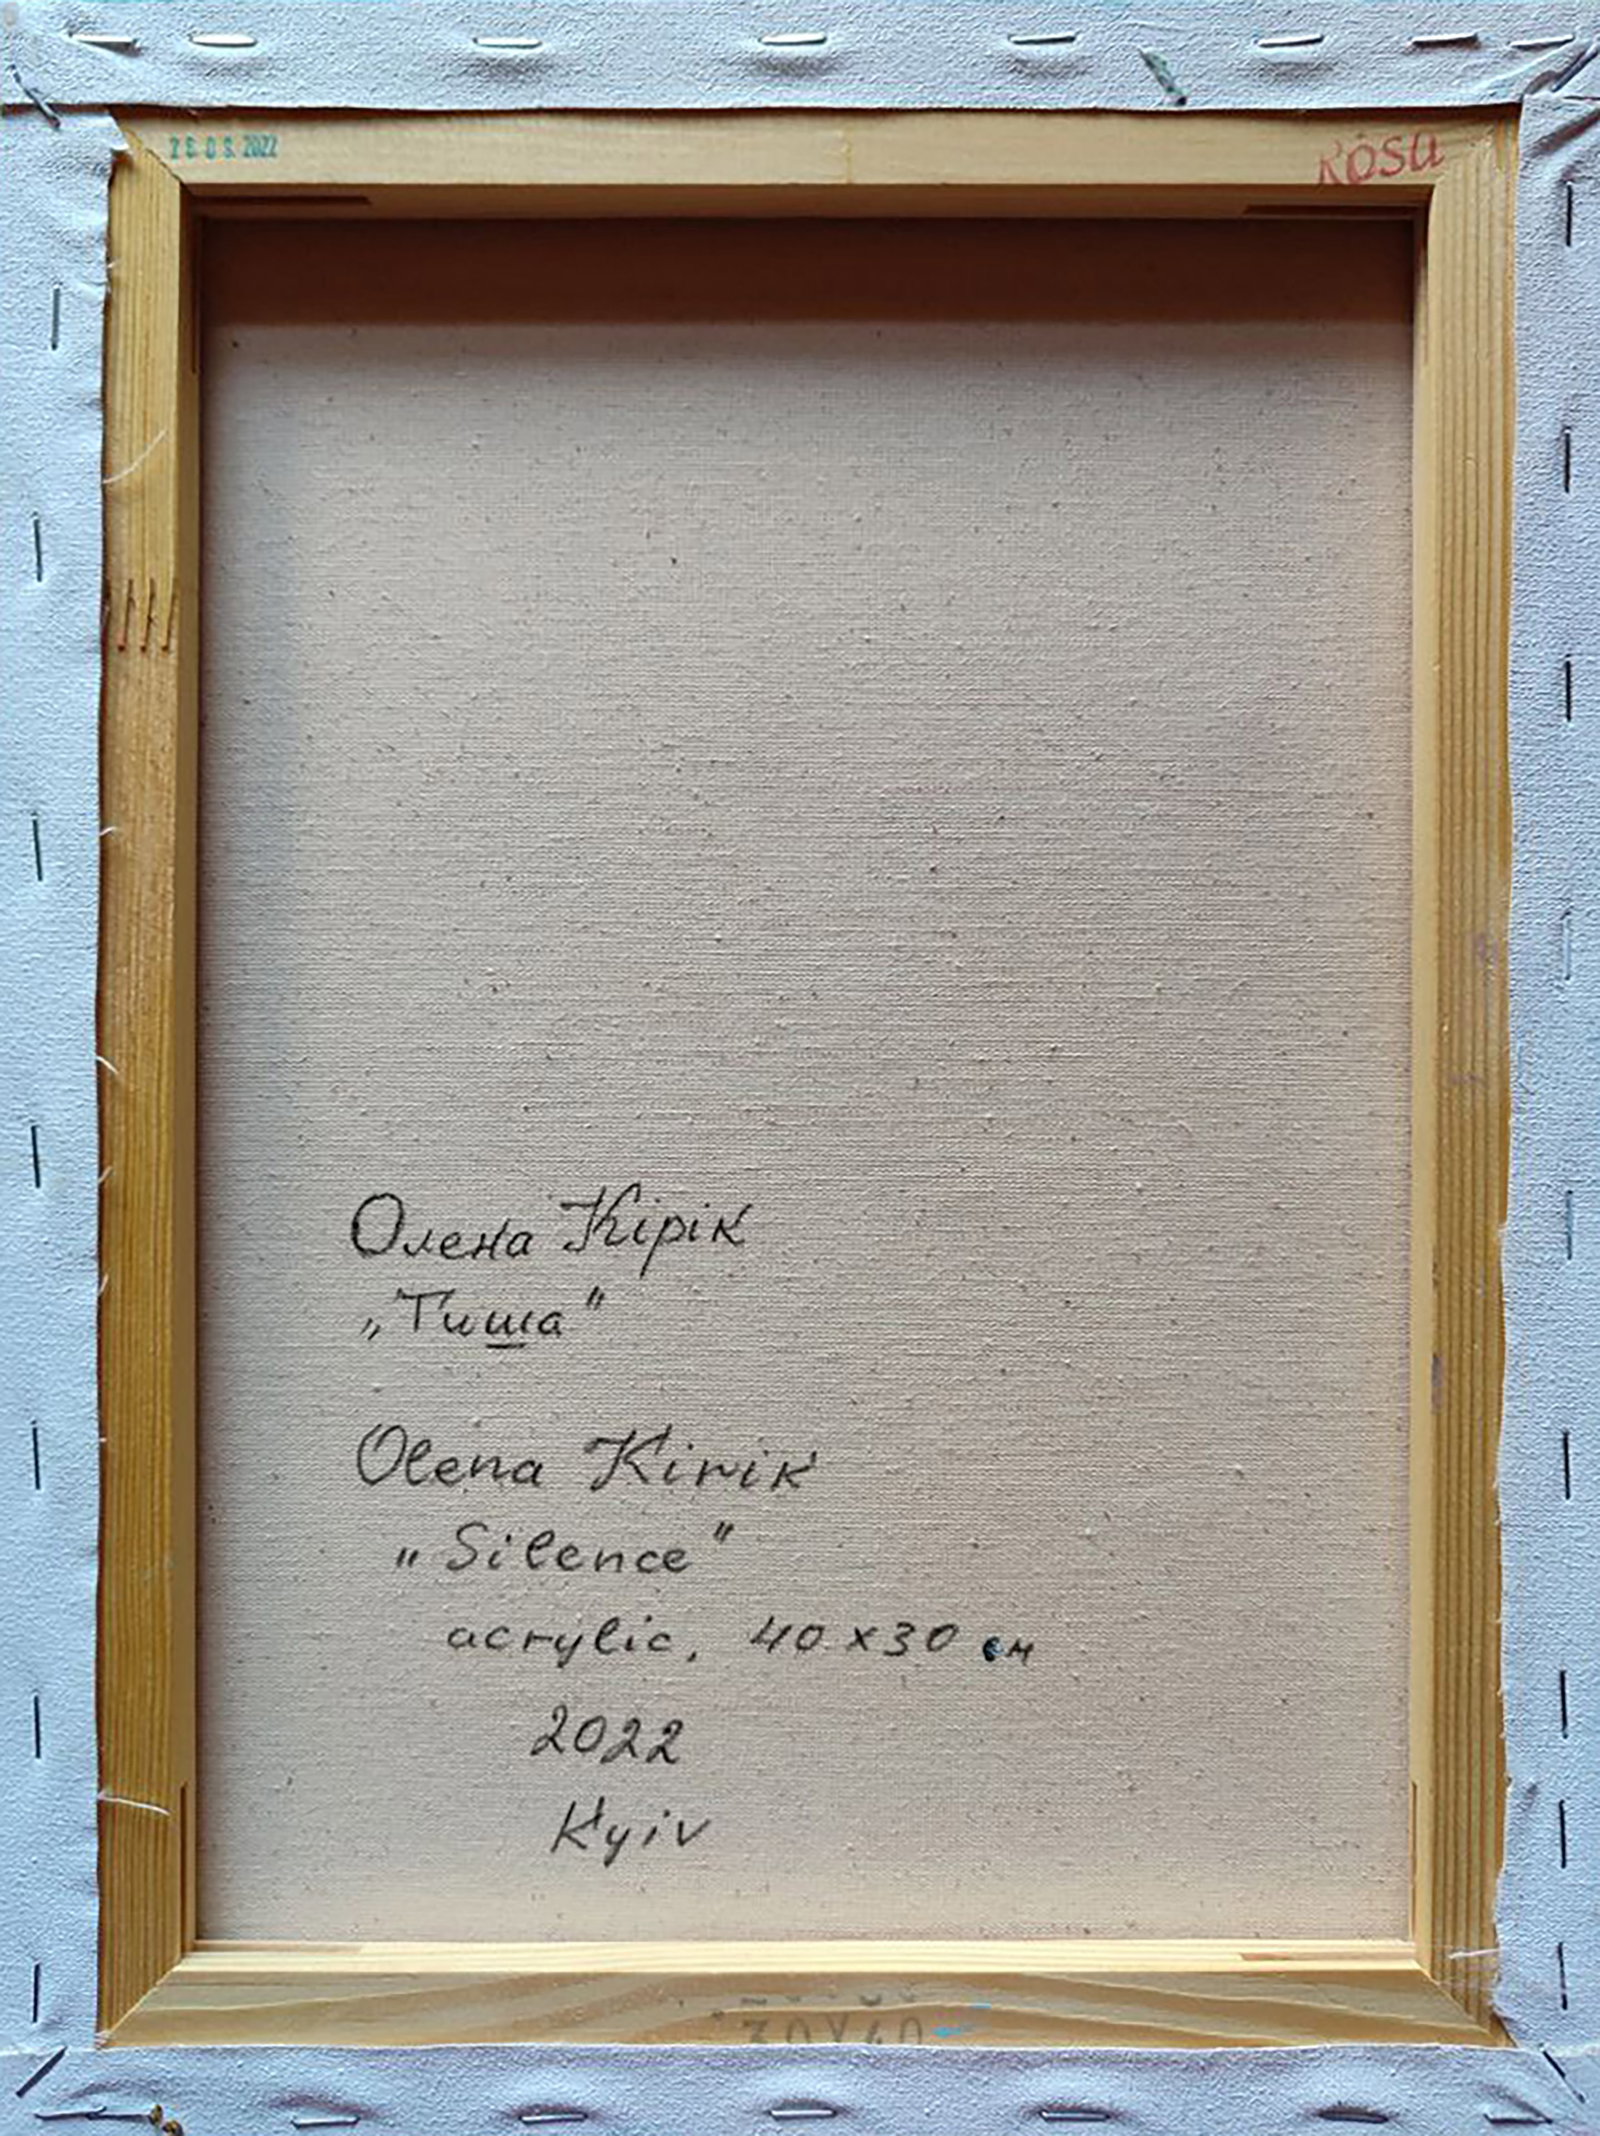 ROSA
Олена Кірік
„Тиша"
Olena Kirik
„Silence"
acrylic, 40 x 30 см
2022
Kyiv
30X40